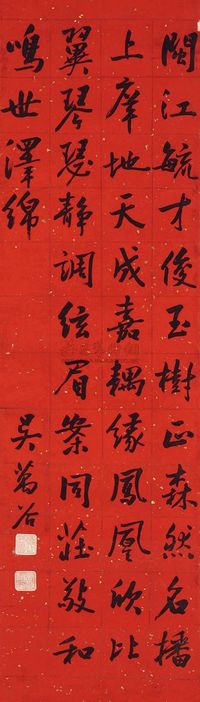 閩江毓才俊玉樹正森然名播
上庠地天成嘉耦緣鳳凰欣比
翼琴瑟静調弦眉案同莊敬和
鳴世澤綿
吳萬谷